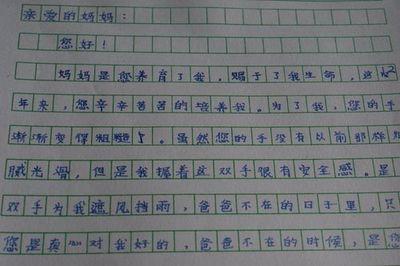 亲爱的妈妈：
您好！
妈妈是您养育了我，赐于了我生命，这
年来，您辛辛苦苦的培养我。为了我，您的手
渐渐变得粗糙了。虽然您的手没有以前那样
腻光滑，但是我握着这双手很有安全感。是
双手为我遮风挡雨，爸爸不在的日子里，只
您是真心对我好的，爸爸不在的时候，是您